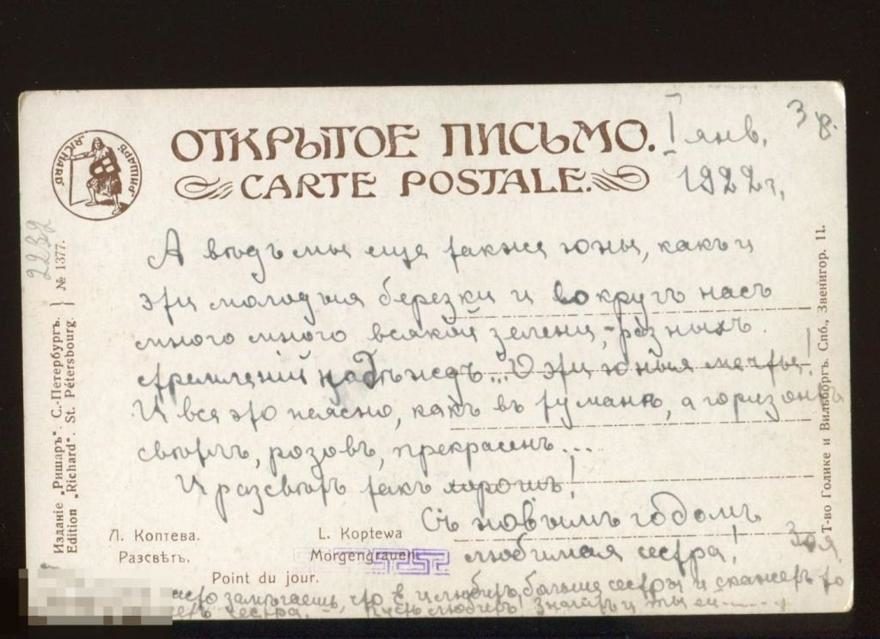 ОТКРЫТОЕ ПИСЬМО.
CARTE POSTALE.
1 янв.
1922 г.
РИШАРЪ RICHARD
2232
Изданіе „Ришаръ“. С.-Петербургъ.
Edition „Richard“. St. Pétersbourg.
№ 1377.
А вѣдь мы еще также юны, какъ и
эти молодыя березки и вокругъ насъ
много много всякой зелени, - разныхъ
стремленій надѣждъ... О эти юныя мечты!
И все это неясно, какъ въ туманѣ, а горизонтъ
свѣтлъ, розовъ, прекрасенъ...
И разсвѣтъ такъ хорошъ!
Съ новымъ годомъ
любимая сестра!
Зоя
Л. Коптева.
Разсвѣтъ.
L. Koptewa
Morgengrauen
Point du jour.
Т-во Голике и Вильборгъ. Спб., Звенигор. 11.
что я любитъ больше сестры и скажетъ
сестра. Пусть любитъ! Знаетъ и ты